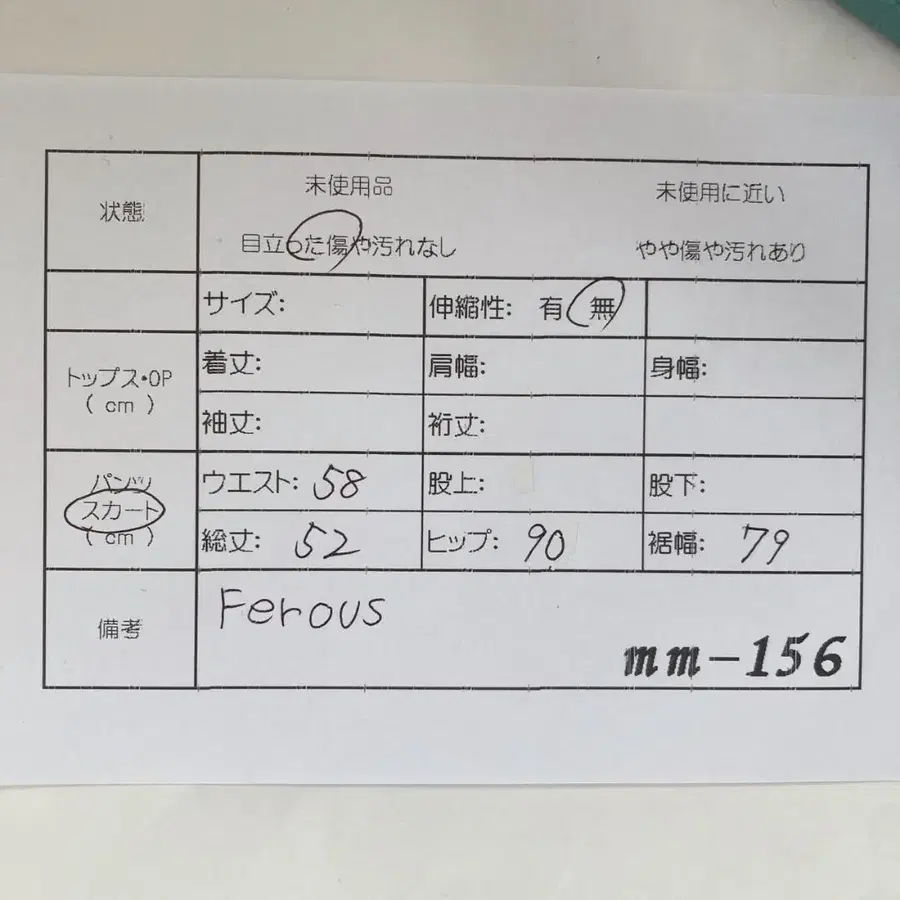 状態
未使用品 未使用に近い
目立った傷や汚れなし やや傷や汚れあり
サイズ: 伸縮性: 有 無
トップス・OP
( cm )
着丈: 肩幅: 身幅:
袖丈: 裄丈:
パンツ
スカート
( cm )
ウエスト: 58 股上: 股下:
総丈: 52 ヒップ: 90 裾幅: 79
備考
Ferous
mm-156